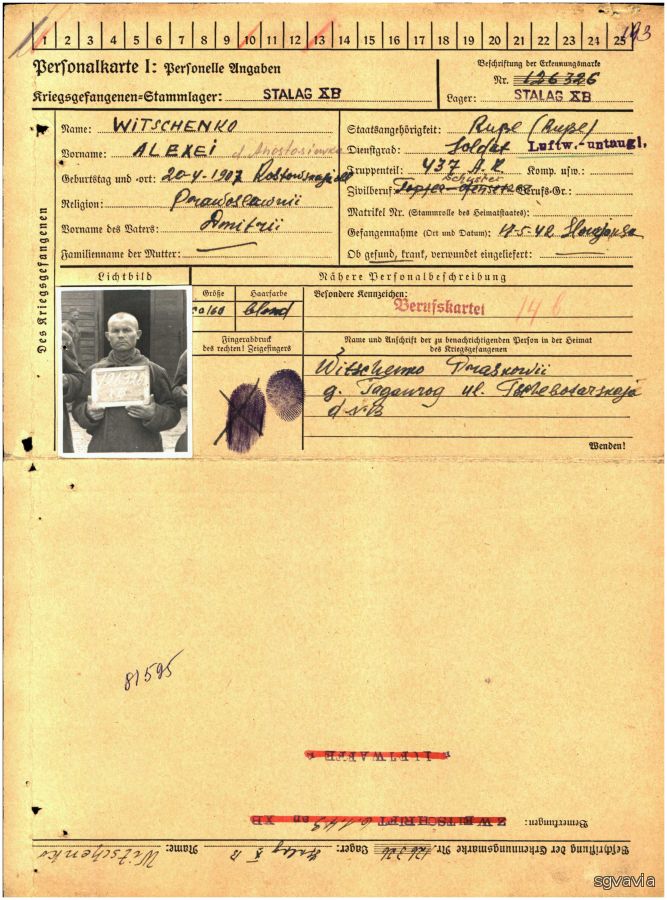 1 2 3 4 5 6 7 8 9 10 11 12 13 14 15 16 17 18 19 20 21 22 23 24 25
193
Personalkarte I: Personelle Angaben
Kriegsgefangenen=Stammlager: STALAG XB
Beschriftung der Erkennungsmarke
Nr. 126326
Lager: STALAG XB
Des Kriegsgefangenen
Name: WITSCHENKO
Vorname: ALEXEI d Anastasiewka
Geburtstag und -ort: 20-4-1907 Rostowskaja
Religion: Prawoslawnii
Vorname des Vaters: Dmitrii
Familienname der Mutter:
Staatsangehörigkeit: Ruße (Ruße)
Dienstgrad: Soldat Luftw.-untaugl.
Truppenteil: 437 A.R. Komp. usw.:
Schuster
Zivilberuf: Berufs-Gr.:
Matrikel Nr. (Stammrolle des Heimatstaates):
Gefangennahme (Ort und Datum): 17-5-42
Ob gesund, krank, verwundet eingeliefert:
Lichtbild
Nähere Personalbeschreibung
Größe Haarfarbe
blond
Besondere Kennzeichen:
Berufskartei 14 b
Fingerabdruck
des rechten! Zeigefingers
Name und Anschrift der zu benachrichtigenden Person in der Heimat
des Kriegsgefangenen
Witschenko Praskowii
g. Taganrog ul. Tschebotarskaja
d
Wenden!
81595
LUFTWAFFE
Bemerkungen: ZWEITSCHRIFT 6.1.43 an XB
Beschriftung der Erkennungsmarke Nr. 126326 Lager: Stalag X B Name: Witschenko
sgvavia